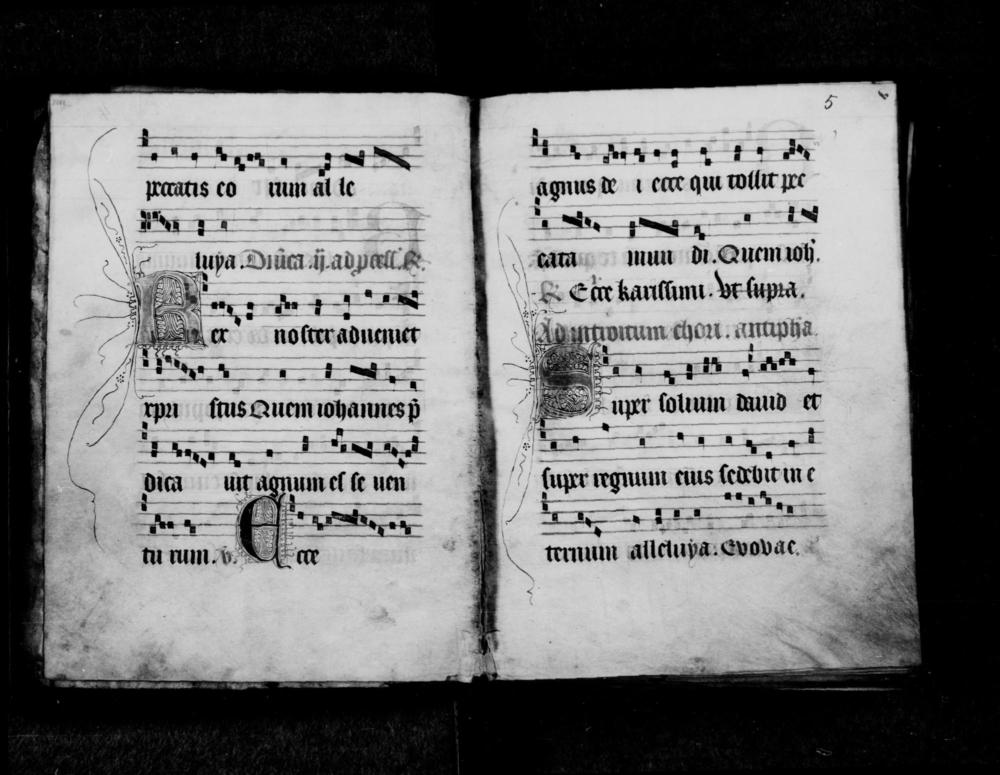 peccatis eo rum al le
luya. Dn̄ica .ij. ad ꝓcess. R.
Rex noster adveniet
xpri stus Quem iohannes p̄
dica uit agnum es se uen
tu rum. v. Ecce
5
agnus de i ecce qui tollit pec
cata mun di. Quem ioh̄.
R. Ecce karissimi. Vt supra.
Ad introitum chori. antipha.
Super solium dauid et
super regnum eius sedebit in e
ternum alleluya. Evovae.